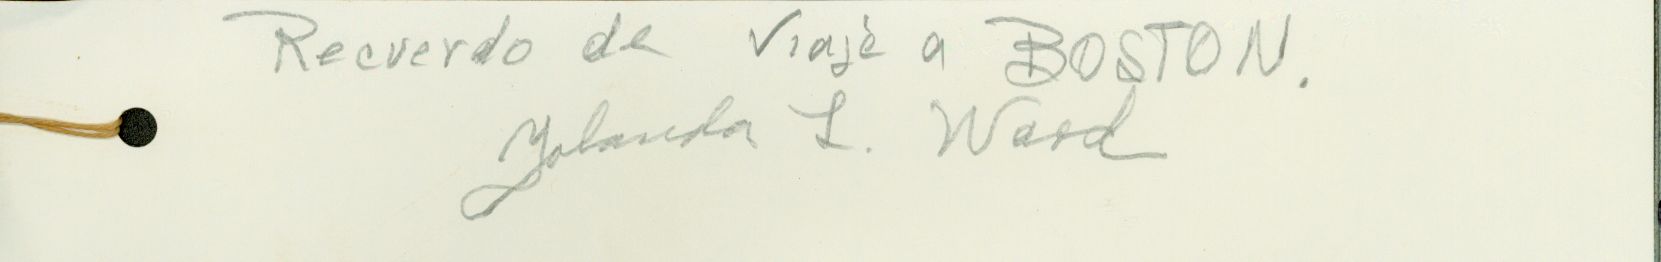 Recuerdo de viaje a BOSTON.
Yolanda L. Ward